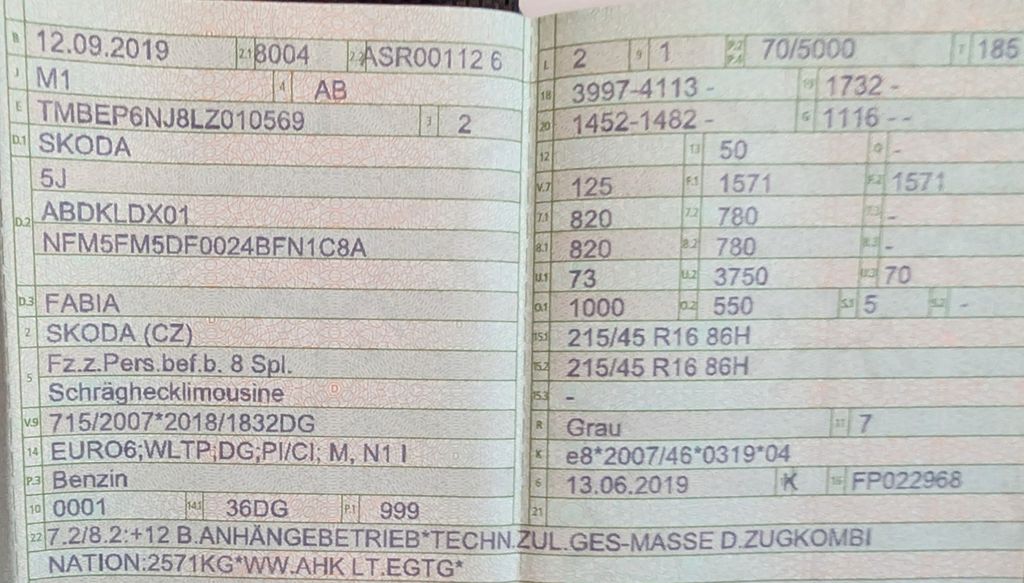 B 12.09.2019 2.1 8004 2.2 ASR00112 6
J M1 4 AB
E TMBEP6NJ8LZ010569 3 2
D.1 SKODA
5J
D.2 ABDKLDX01
NFM5FM5DF0024BFN1C8A
D.3 FABIA
2 SKODA (CZ)
5 Fz.z.Pers.bef.b. 8 Spl.
Schräghecklimousine
V.9 715/2007*2018/1832DG
14 EURO6;WLTP;DG;PI/CI; M, N1 I
P.3 Benzin
10 0001 14.1 36DG P.1 999
22 7.2/8.2:+12 B.ANHÄNGEBETRIEB*TECHN.ZUL.GES-MASSE D.ZUGKOMBI
NATION:2571KG*WW.AHK LT.EGTG*
L 2 9 1 P.2 P.4 70/5000 T 185
18 3997-4113 - 19 1732 -
20 1452-1482 - G 1116 - -
12 13 50 Q -
V.7 125 F.1 1571 F.2 1571
7.1 820 7.2 780 7.3 -
8.1 820 8.2 780 8.3 -
U.1 73 U.2 3750 U.3 70
O.1 1000 O.2 550 S.1 5 S.2 -
15.1 215/45 R16 86H
15.2 215/45 R16 86H
15.3 -
R Grau 11 7
K e8*2007/46*0319*04
6 13.06.2019 K 16 FP022968
21